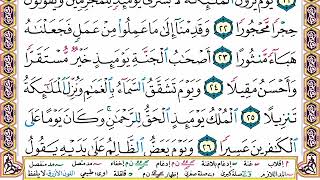 يَوْمَ يَرَوْنَ الْمَلَٰٓئِكَةَ لَا بُشْرَىٰ يَوْمَئِذٍ لِّلْمُجْرِمِينَ وَيَقُولُونَ
حِجْرًا مَّحْجُورًا ٢٢ وَقَدِمْنَآ إِلَىٰ مَا عَمِلُوا۟ مِنْ عَمَلٍ فَجَعَلْنَٰهُ
هَبَآءً مَّنثُورًا ٢٣ أَصْحَٰبُ الْجَنَّةِ يَوْمَئِذٍ خَيْرٌ مُّسْتَقَرًّا
وَأَحْسَنُ مَقِيلًا ٢٤ وَيَوْمَ تَشَقَّقُ السَّمَآءُ بِالْغَمَٰمِ وَنُزِّلَ الْمَلَٰٓئِكَةُ
تَنزِيلًا ٢٥ الْمُلْكُ يَوْمَئِذٍ الْحَقُّ لِلرَّحْمَٰنِ ۚ وَكَانَ يَوْمًا عَلَى
الْكَٰفِرِينَ عَسِيرًا ٢٦ وَيَوْمَ يَعَضُّ الظَّالِمُ عَلَىٰ يَدَيْهِ يَقُولُ